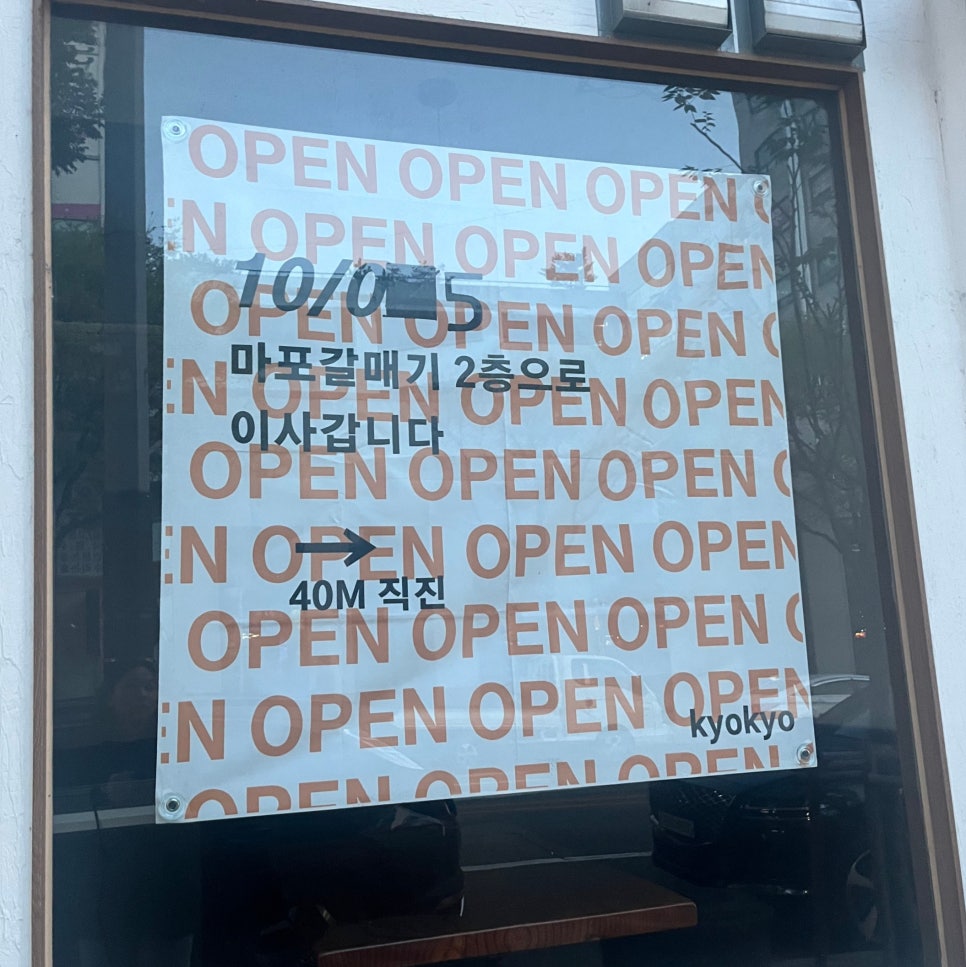 OPEN OPEN OPEN
EN OPEN OPEN OPEN
10/0 5
OPEN OPEN OPEN
마포갈매기 2층으로
EN OPEN OPEN OPEN
이사갑니다
OPEN OPEN OPEN
EN OPEN OPEN OPEN
40M 직진
OPEN OPEN OPEN
EN OPEN OPEN OPEN
kyokyo
OPEN OPEN OPEN